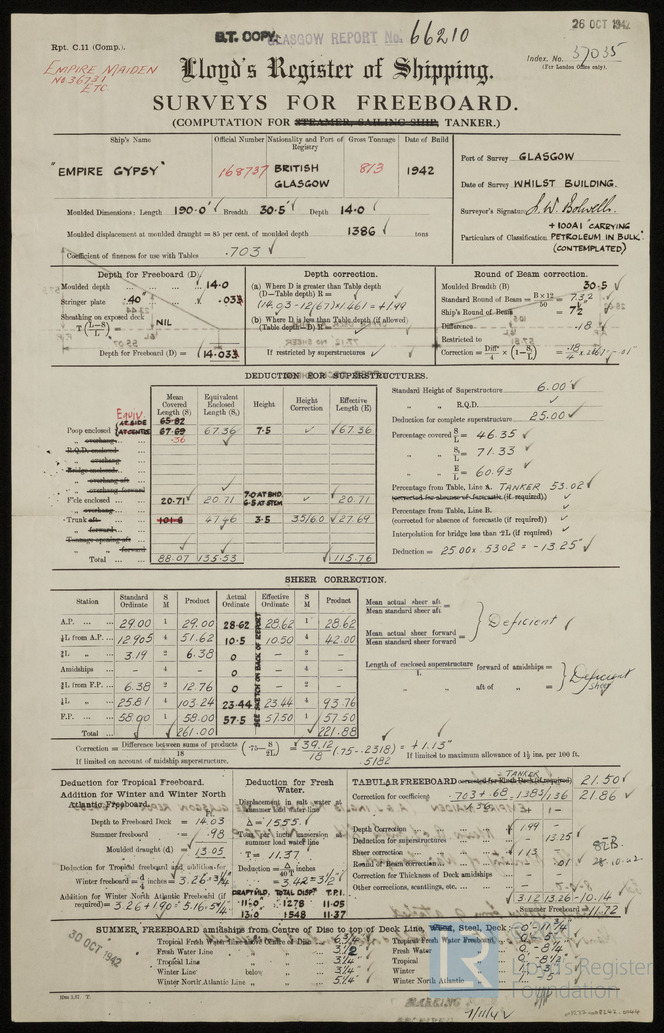 26 OCT 1942
B.T. COPY.
GLASGOW REPORT No. 66210
Rpt. C.11 (Comp.).
EMPIRE MAIDEN
No 36731
ETC
Index. No. 37035
(For London Office only).
Lloyd's Register of Shipping.
SURVEYS FOR FREEBOARD.
(COMPUTATION FOR STEAMER, SAILING SHIP, TANKER.)
Ship's Name
Official Number
Nationality and Port of Registry
Gross Tonnage
Date of Build
"EMPIRE GYPSY"
168737
BRITISH
GLASGOW
813
1942
Port of Survey GLASGOW
Date of Survey WHILST BUILDING.
Surveyor's Signature
Particulars of Classification +100A1 "CARRYING PETROLEUM IN BULK" (CONTEMPLATED)
Moulded Dimensions: Length 190.0' Breadth 30.5' Depth 14.0
Moulded displacement at moulded draught = 85 per cent. of moulded depth 1386 tons
Coefficient of fineness for use with Tables .703
Depth for Freeboard (D)
Moulded depth ... 14.0
Stringer plate .40" .033
Sheathing on exposed deck
T (L-S/L) = NIL
Depth for Freeboard (D) = 14.033
Depth correction.
(a) Where D is greater than Table depth
(D—Table depth) R =
(14.03-12.67) 1.461 = +1.99
(b) Where D is less than Table depth (if allowed)
(Table depth—D) R =
If restricted by superstructures
Round of Beam correction.
Moulded Breadth (B) 30.5
Standard Round of Beam = B × 12/50 = 7.32
Ship's Round of Beam = 7½
Difference .18
Restricted to
Correction = Diff/4 × (1 - S₁/L) =
DEDUCTION FOR SUPERSTRUCTURES.
Mean Covered Length (S)
Equivalent Enclosed Length (S₁)
Height
Height Correction
Effective Length (E)
Equiv.
AT SIDE 65.82
Poop enclosed AT CENTRE 67.69 67.36 7.5 67.36
„ overhang .36
R.Q.D. enclosed
„ overhang
Bridge enclosed
„ overhang aft
„ overhang forward
F'cle enclosed 20.71 20.71 7.0 AT BHD. 6.5 AT STEM 20.71
„ overhang
Trunk aft 101.6 47.46 3.5 3.5/6.0 27.69
„ forward
Tonnage opening aft
„ „ forward
Total 88.07 135.53 115.76
Standard Height of Superstructure 6.00
„ „ R.Q.D.
Deduction for complete superstructure 25.00
Percentage covered S/L = 46.35
„ „ S₁/L = 71.33
„ „ E/L = 60.93
Percentage from Table, Line A. TANKER 53.02
(corrected for absence of forecastle (if required))
Percentage from Table, Line B.
(corrected for absence of forecastle (if required))
Interpolation for bridge less than ·2L (if required)
Deduction = 25.00 x .5302 = -13.25
SHEER CORRECTION.
Station
Standard Ordinate
S M
Product
Actual Ordinate
Effective Ordinate
S M
Product
A.P. 29.00 1 29.00 28.62 28.62 1 28.62
⅙L from A.P. 12.905 4 51.62 10.5 10.50 4 42.00
⅓L „ 3.19 2 6.38 0 2 –
Amidships – 4 – 0 4 –
⅓L from F.P. 6.38 2 12.76 0 2 –
⅙L „ 25.81 4 103.24 23.44 23.44 4 93.76
F.P. 58.00 1 58.00 57.5 57.50 1 57.50
Total 261.00 221.88
SEE SKETCH ON BACK OF REPORT
Mean actual sheer aft
Mean standard sheer aft =
Mean actual sheer forward
Mean standard sheer forward =
Deficient
Length of enclosed superstructure/L forward of amidships =
„ „ aft of „ =
Deficient sheer
Correction = Difference between sums of products/18 (·75 - S/2L) = 39.12/18 (.75-.2318) = +1.13"
.5182
If limited on account of midship superstructure.
If limited to maximum allowance of 1½ ins. per 100 ft.
Deduction for Tropical Freeboard.
Addition for Winter and Winter North Atlantic Freeboard.
Ft.
Depth to Freeboard Deck = 14.03
Summer freeboard = .98
Moulded draught (d) = 13.05
Deduction for Tropical freeboard and addition for Winter freeboard = d/4 inches = 3.26 = 3¼"
Addition for Winter North Atlantic Freeboard (if required) = 3.26 + 1.90 = 5.16 = 5¼"
Deduction for Fresh Water.
Displacement in salt water at summer load water line
Δ = 1555
Tons per inch immersion at summer load water line
T = 11.37
Deduction = Δ/40T inches
= 3.42 = 3½"
DRAFT MLD. TOTAL DISPT T.P.I.
11.0 1278 11.05
13.0 1548 11.37
TABULAR FREEBOARD TANKER corrected for Flush Deck (if required) 21.50
Correction for coefficient .703 + .68/1.36 = 1.383/1.36 21.86
+ –
Depth Correction 1.99
Deduction for superstructures 13.25
Sheer correction 1.13
Round of Beam correction .01
Correction for Thickness of Deck amidships
Other corrections, scantlings, etc.
3.12 13.26 -10.14
Summer Freeboard = 11.72
SUMMER FREEBOARD amidships from Centre of Disc to top of Deck Line, Wood, Steel, Deck: 0' - 11¾"
Tropical Fresh Water Line above Centre of Disc
Fresh Water Line „ „ 3½
Tropical Line „ „ 3¼"
Winter Line below „ „ 3¼"
Winter North Atlantic Line „ „ 5¼"
Tropical Fresh Water Freeboard
Fresh Water „ 0' - 8¼"
Tropical „ 0' - 8½"
Winter „ 1' - 3"
Winter North Atlantic „
30 OCT 1942
Lloyd's Register
Foundation